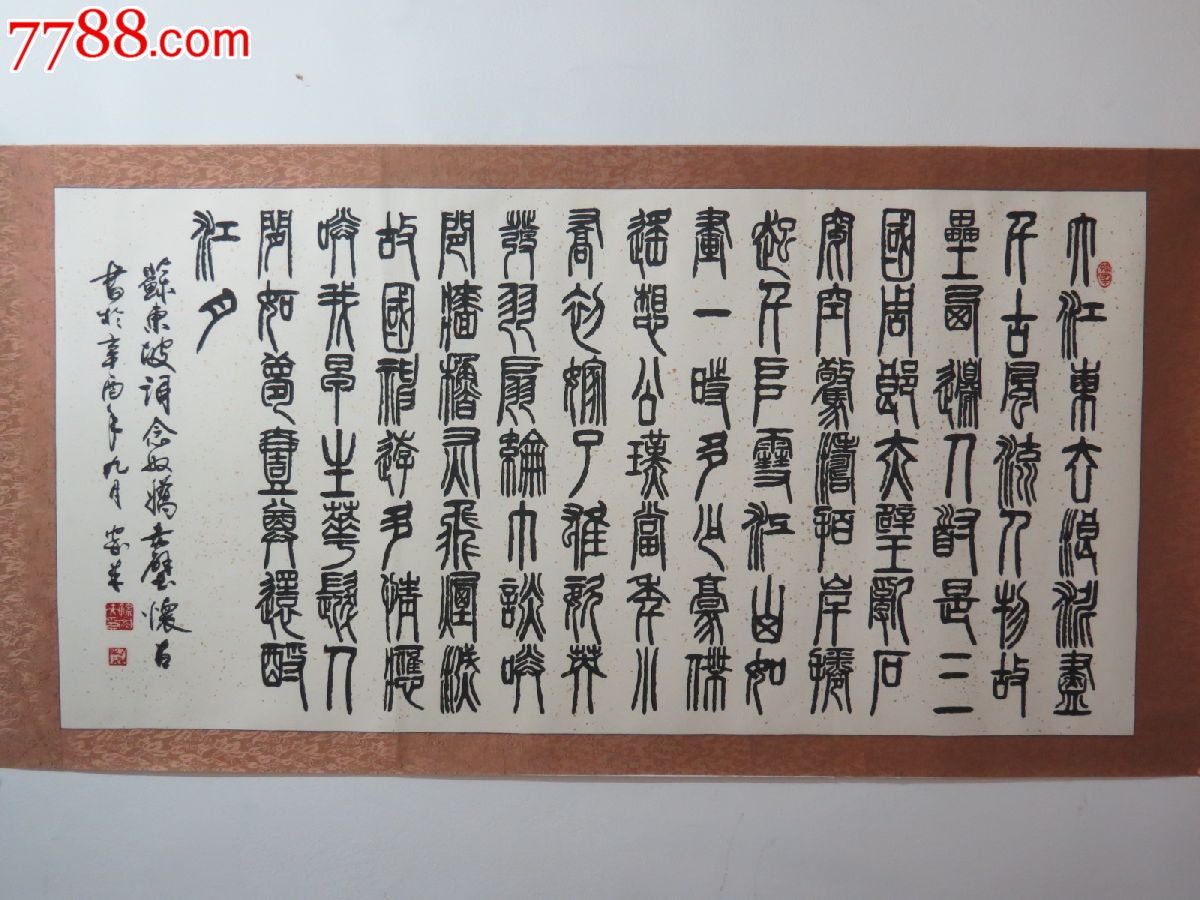 7788.com
大江東去浪淘盡
千古風流人物故
壘西邊人道是三
國周郎赤壁亂石
穿空驚濤拍岸捲
起千堆雪江山如
畫一時多少豪傑
遙想公瑾當年小
喬初嫁了雄姿英
發羽扇綸巾談笑
間檣櫓灰飛煙滅
故國神遊多情應
笑我早生華髮人
間如夢壹尊還酹
江月
蘇東坡詞念奴嬌赤壁懷古
書於辛酉年九月